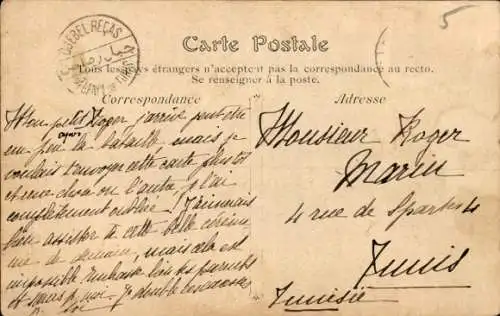 5
DJEBEL REÇAS
Carte Postale
Tous les pays étrangers n'acceptent pas la correspondance au recto.
Se renseigner à la poste.
Correspondance
Adresse
Mon petit Roger j'arrive peut être
un peu après la bataille, mais je
voulais t'envoyer cette carte plus tôt
et une chose ou l'autre, je l'ai
complètement oubliée! J'aimerais
bien assister à cette belle cérémo
nie de demain, mais cela est
impossible Embrasse bien tes parents
et
Monsieur Roger
Marin
4 rue de Sparte 4
Tunis
Tunisie